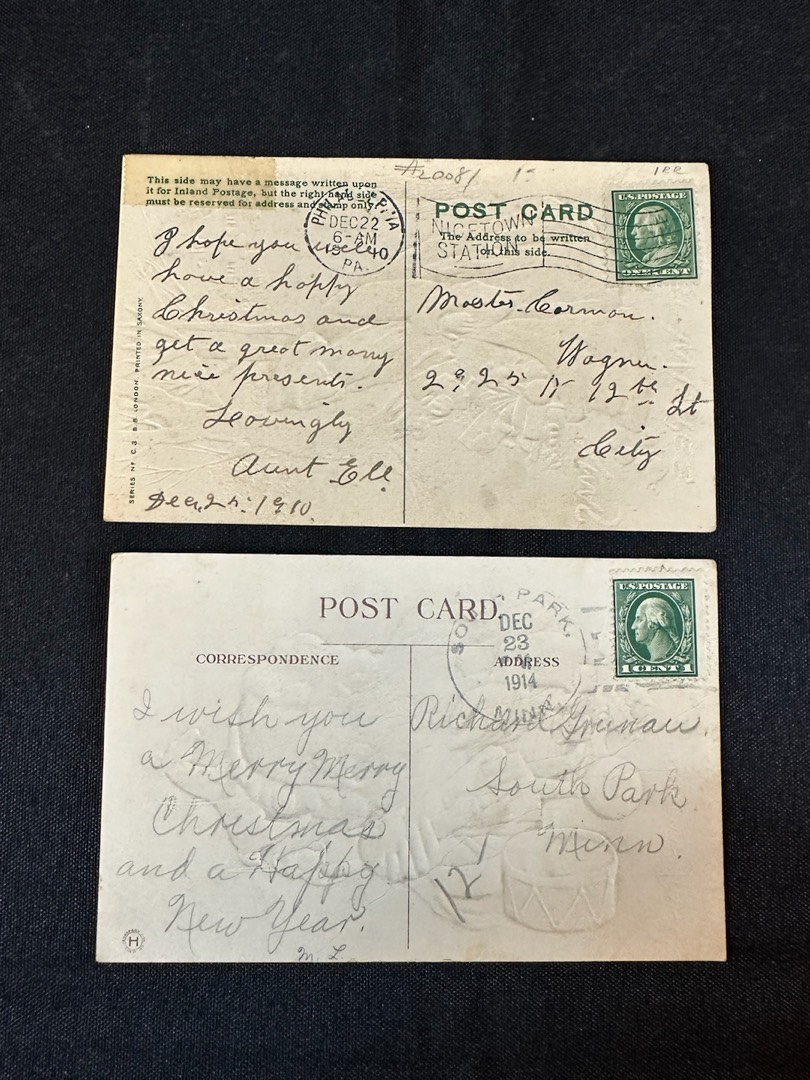 A20081
This side may have a message written upon
it for Inland Postage, but the right hand side
must be reserved for address and stamp only.
I hope you will
have a happy
Christmas and
get a great many
nice presents.
Lovingly
Aunt Ell
Dec. 25. 1910.
SERIES No C.3 B.B. LONDON. PRINTED IN SAXONY.
PHILADELPHIA
DEC 22
6-AM
1910
PA.
NICETOWN
STATION
POST CARD
The Address to be written
on this side.
U.S.POSTAGE
ONE CENT
Master Carman.
Wagner.
2925 N 12th St
City
POST CARD.
CORRESPONDENCE
ADDRESS
I wish you
a Merry Merry
Christmas
and a Happy
New Year.
M. L.
H
SOUTH PARK,
DEC
23
1914
MINN.
U.S.POSTAGE
1 CENT 1
Richard Grunau.
South Park
Minn.
12